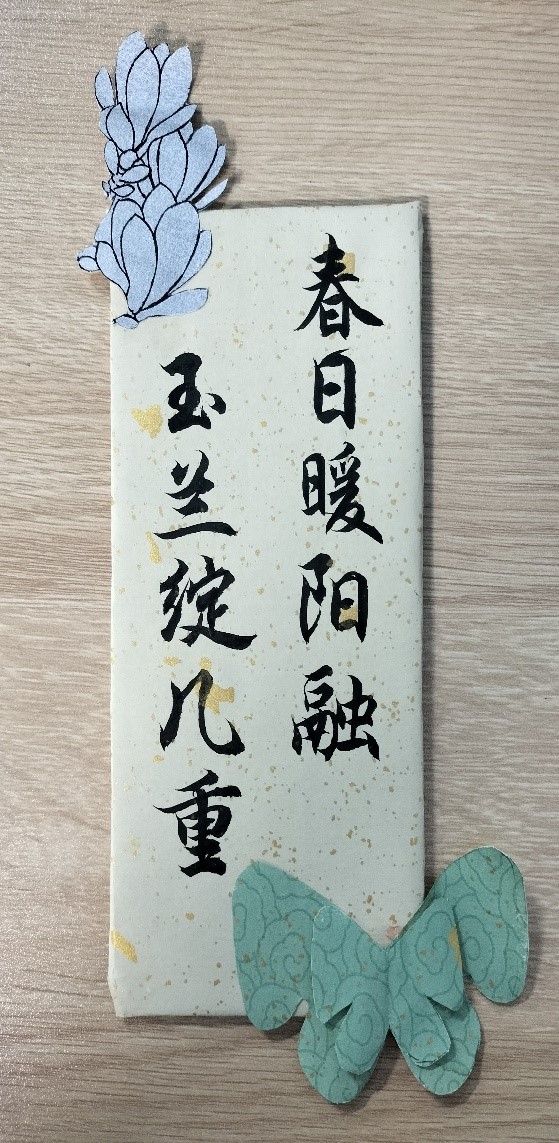 春日暖阳融
玉兰绽几重